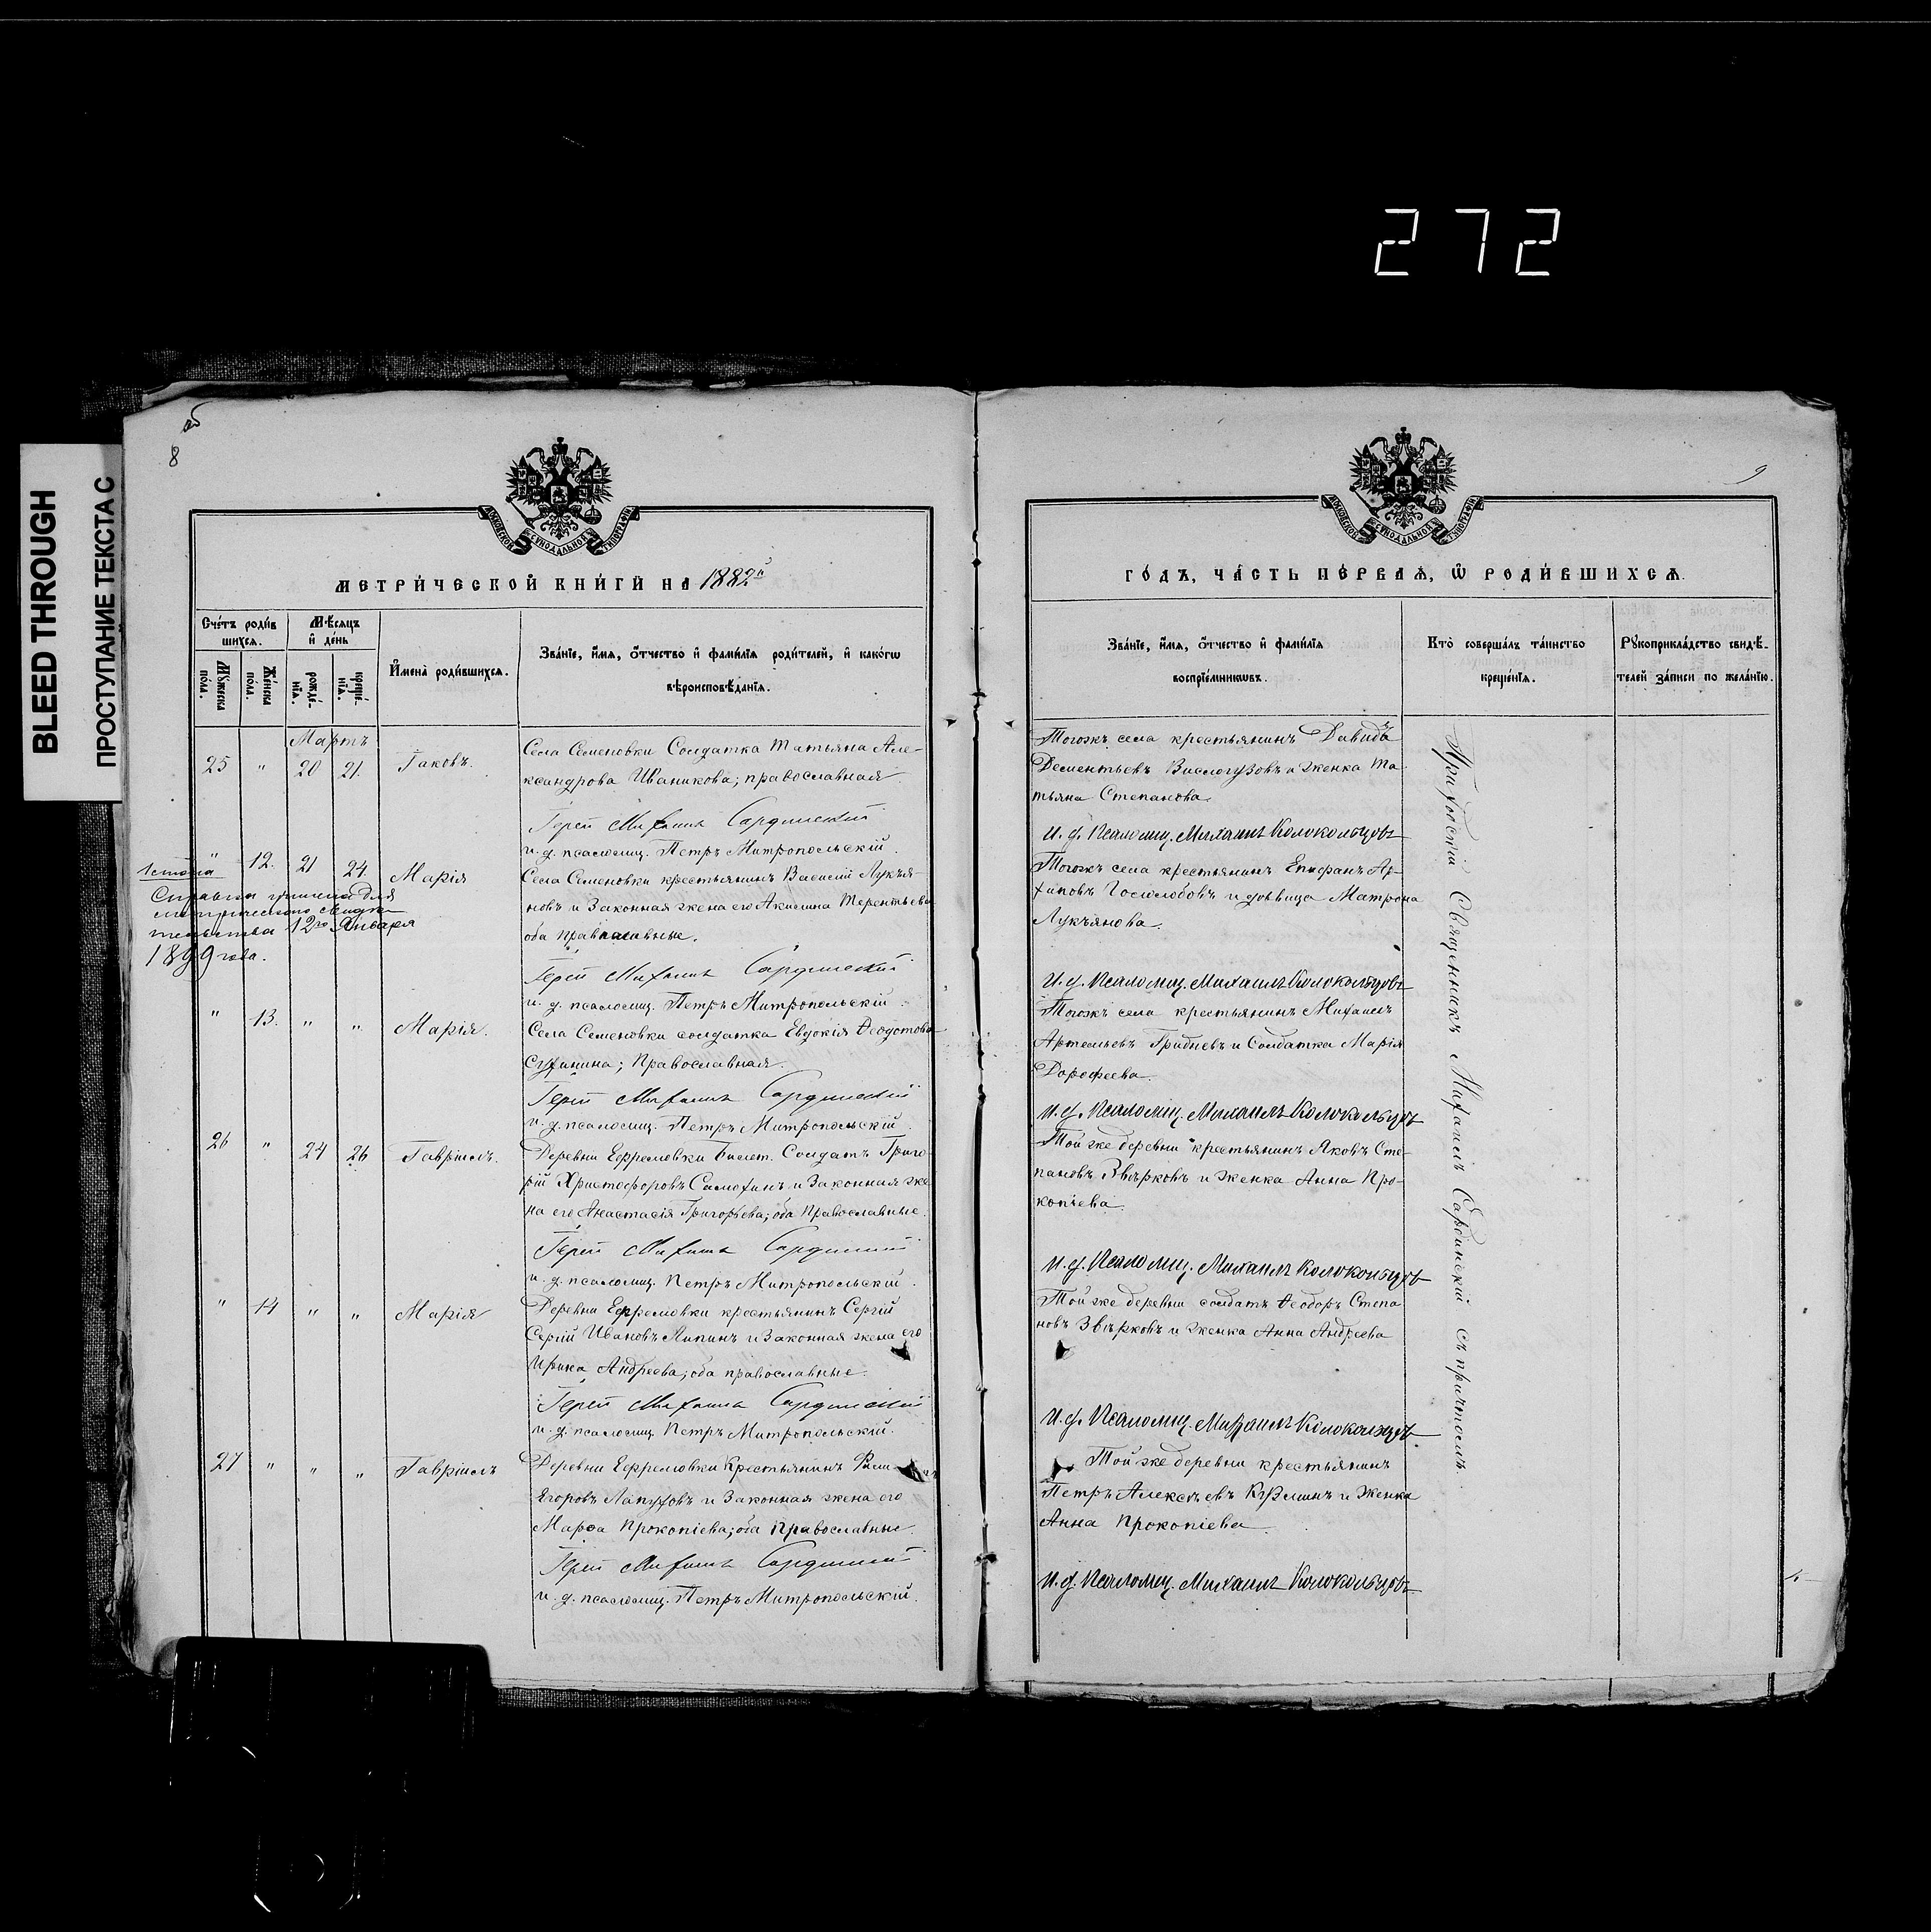 272
BLEED THROUGH
ПРОСТУПАНИЕ ТЕКСТА С
об
8
МОСКОВСКОЙ СѴНОДАЛЬНОЙ ТИПОГРАФІИ
МЕТРИ́ЧЕСКОЙ КНИ́ГИ НА 1882й
Сче́тъ роди́в
шихся.
Мѣ́сяцъ
и де́нь
Мꙋ́жеска
по́ла.
Же́нска
по́ла.
рожде́-
нїя.
креще́-
нїя.
Имена̀ роди́вшихся.
Зва́нїе, и́мя, ѻ҆́тчество и фами́лїя роди́телей, и како́гѡ
вѣроисповѣ́данїя.
Мартъ
25 " 20 21. Іаковъ.
Села Семеновки Солдатка Татьяна Але-
ксандрова Иваникова; православная
Іерей Михаилъ Сардинскій
и. д. псаломщ. Петръ Митропольскій.
" 12. 21 24. Марія
Села Семеновки крестьянинъ Василій Лукъя-
новъ и Законная жена его Акилина Терентьева
оба православные.
Справка
метрическаго
12го Января
1899 года.
Іерей Михаилъ Сардинскій
и. д. псаломщ. Петръ Митропольскій.
" 13. " " Марія.
Села Семеновки солдатка Евдокія Ѳеодотова
Сухинина; Православная.
Іерей Михаилъ Сардинскій
и. д. псаломщ. Петръ Митропольскій.
26 " 24 26 Гавріилъ.
Деревни Ефремовки Билет. Солдатъ Григо-
рій Христофоровъ Самохинъ и Законная же
на его Анастасія Григорьева; оба Православные.
Іерей Михаилъ Сардинскій
и. д. псаломщ. Петръ Митропольскій.
" 14 " " Марія
Деревни Ефремовки крестьянинъ Сергій
Сергій Ивановъ Липинъ и Законная жена его
Ирина Андреева; оба православные.
Іерей Михаилъ Сардинскій
и. д. псаломщ. Петръ Митропольскій.
27 " " " Гавріилъ
Деревни Ефремовки Крестьянинъ
Егоровъ Лапуховъ и Законная жена его
Марѳа Прокопіева; оба Православные.
Іерей Михаилъ Сардинскій
и. д. псаломщ. Петръ Митропольскій.
9
МОСКОВСКОЙ СѴНОДАЛЬНОЙ ТИПОГРАФІИ
ГО́ДЪ, ЧА́СТЬ ПЕ́РВАЯ, Ѡ҆ РОДИ́ВШИХСЯ.
Зва́нїе, и́мя, ѻ҆́тчество и фами́лїя
воспрїе́мникѡвъ.
Кто̀ соверша́лъ та́инство
креще́нїя.
Рꙋкоприкла́дство свидѣ́-
телей за́писи по жела́нїю.
Тогожъ села крестьянинъ Давидъ
Дементьевъ Вислогузовъ и женка Та-
тьяна Степанова.
И. д. Псаломщ. Михаилъ Колокольцовъ
Тогожъ села крестьянинъ Епифанъ Ар-
хиповъ Гололобовъ и дѣвица Матрона
Лукъянова.
И. д. Псаломщ. Михаилъ Колокольцовъ
Тогожъ села крестьянинъ Михаилъ
Артемьевъ Гридневъ и Солдатка Марія
Дорофеева.
И. д. Псаломщ. Михаилъ Колокольцовъ
Той же деревни крестьянинъ Яковъ Сте-
пановъ Звѣрковъ и женка Анна Про-
копіева.
И. д. Псаломщ. Михаилъ Колокольцовъ
Той же деревни солдатъ Ѳеодоръ Степа
новъ Звѣрковъ и женка Анна Андреева
И. д. Псаломщ. Михаилъ Колокольцовъ
Той же деревни крестьянинъ
Петръ Алексѣевъ Кузминъ и Женка
Анна Прокопіева.
И. д. Псаломщ. Михаилъ Колокольцовъ
Приходскій Священникъ Михаилъ Сардинскій съ причтомъ.